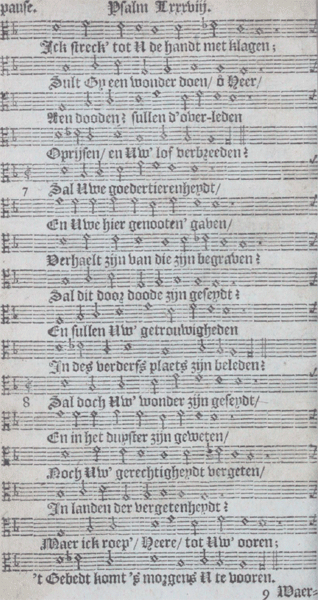 pause. Psalm Lxxxviij.
Ick streck' tot U de handt met klagen;
Sult Gy een wonder doen/ ô Heer/
Aen dooden? sullen d'over-leden
Oprijsen/ en Uw' lof verbreeden?
7 Sal Uwe goedertierenheydt/
En Uwe hier genooten' gaven/
Verhaelt zijn van die zijn begraven?
Sal dit door doode zijn geseydt?
En sullen Uw' getrouwigheden
In des verderfs plaets zijn beleden?
8 Sal doch Uw' wonder zijn geseydt/
En in het duyster zijn geweten/
Noch Uw' gerechtigheydt vergeten/
In landen der vergetenheydt?
Maer ick roep'/ Heere/ tot Uw' ooren;
't Gebedt komt 's morgens U te vooren.
9 Maer-